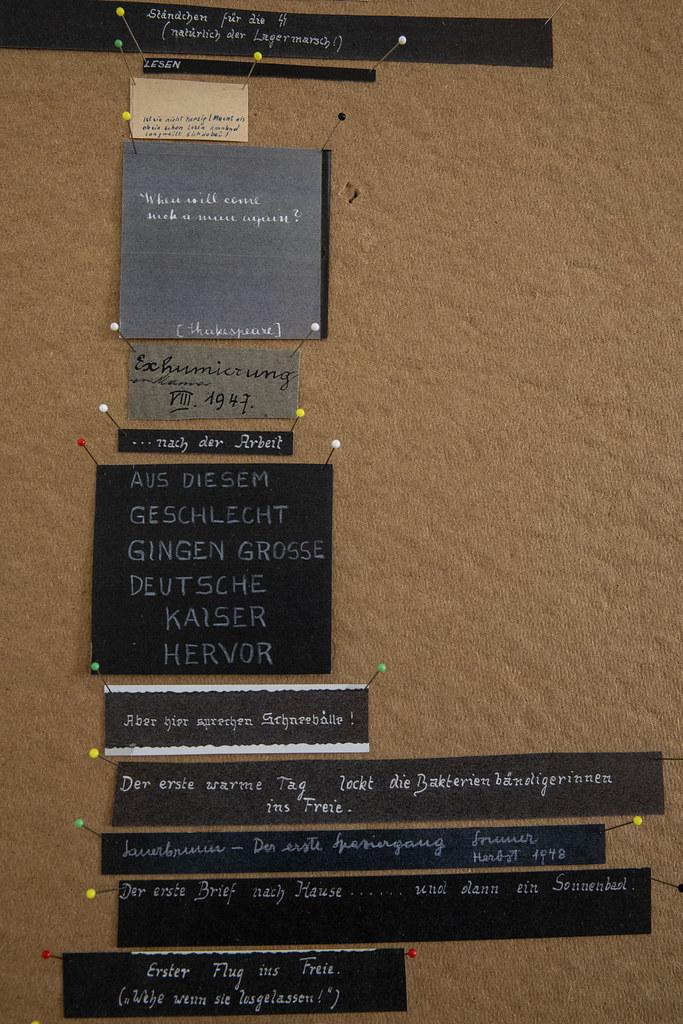 Ständchen für die SS
(natürlich der Lagermarsch!)
LESEN
ist sie nicht herzig! Macht als
When will come
such a man again?
[Shakespeare]
Exhumierung
VIII. 1947.
...nach der Arbeit
AUS DIESEM
GESCHLECHT
GINGEN GROSSE
DEUTSCHE
KAISER
HERVOR
Aber hier sprechen Schneebälle!
Der erste warme Tag lockt die Bakterienbändigerinnen
ins Freie.
Sauerbrunn – Der erste Spaziergang Sommer
Herbst 1948
Der erste Brief nach Hause....... und dann ein Sonnenbad.
Erster Flug ins Freie.
(„Wehe wenn sie losgelassen!")